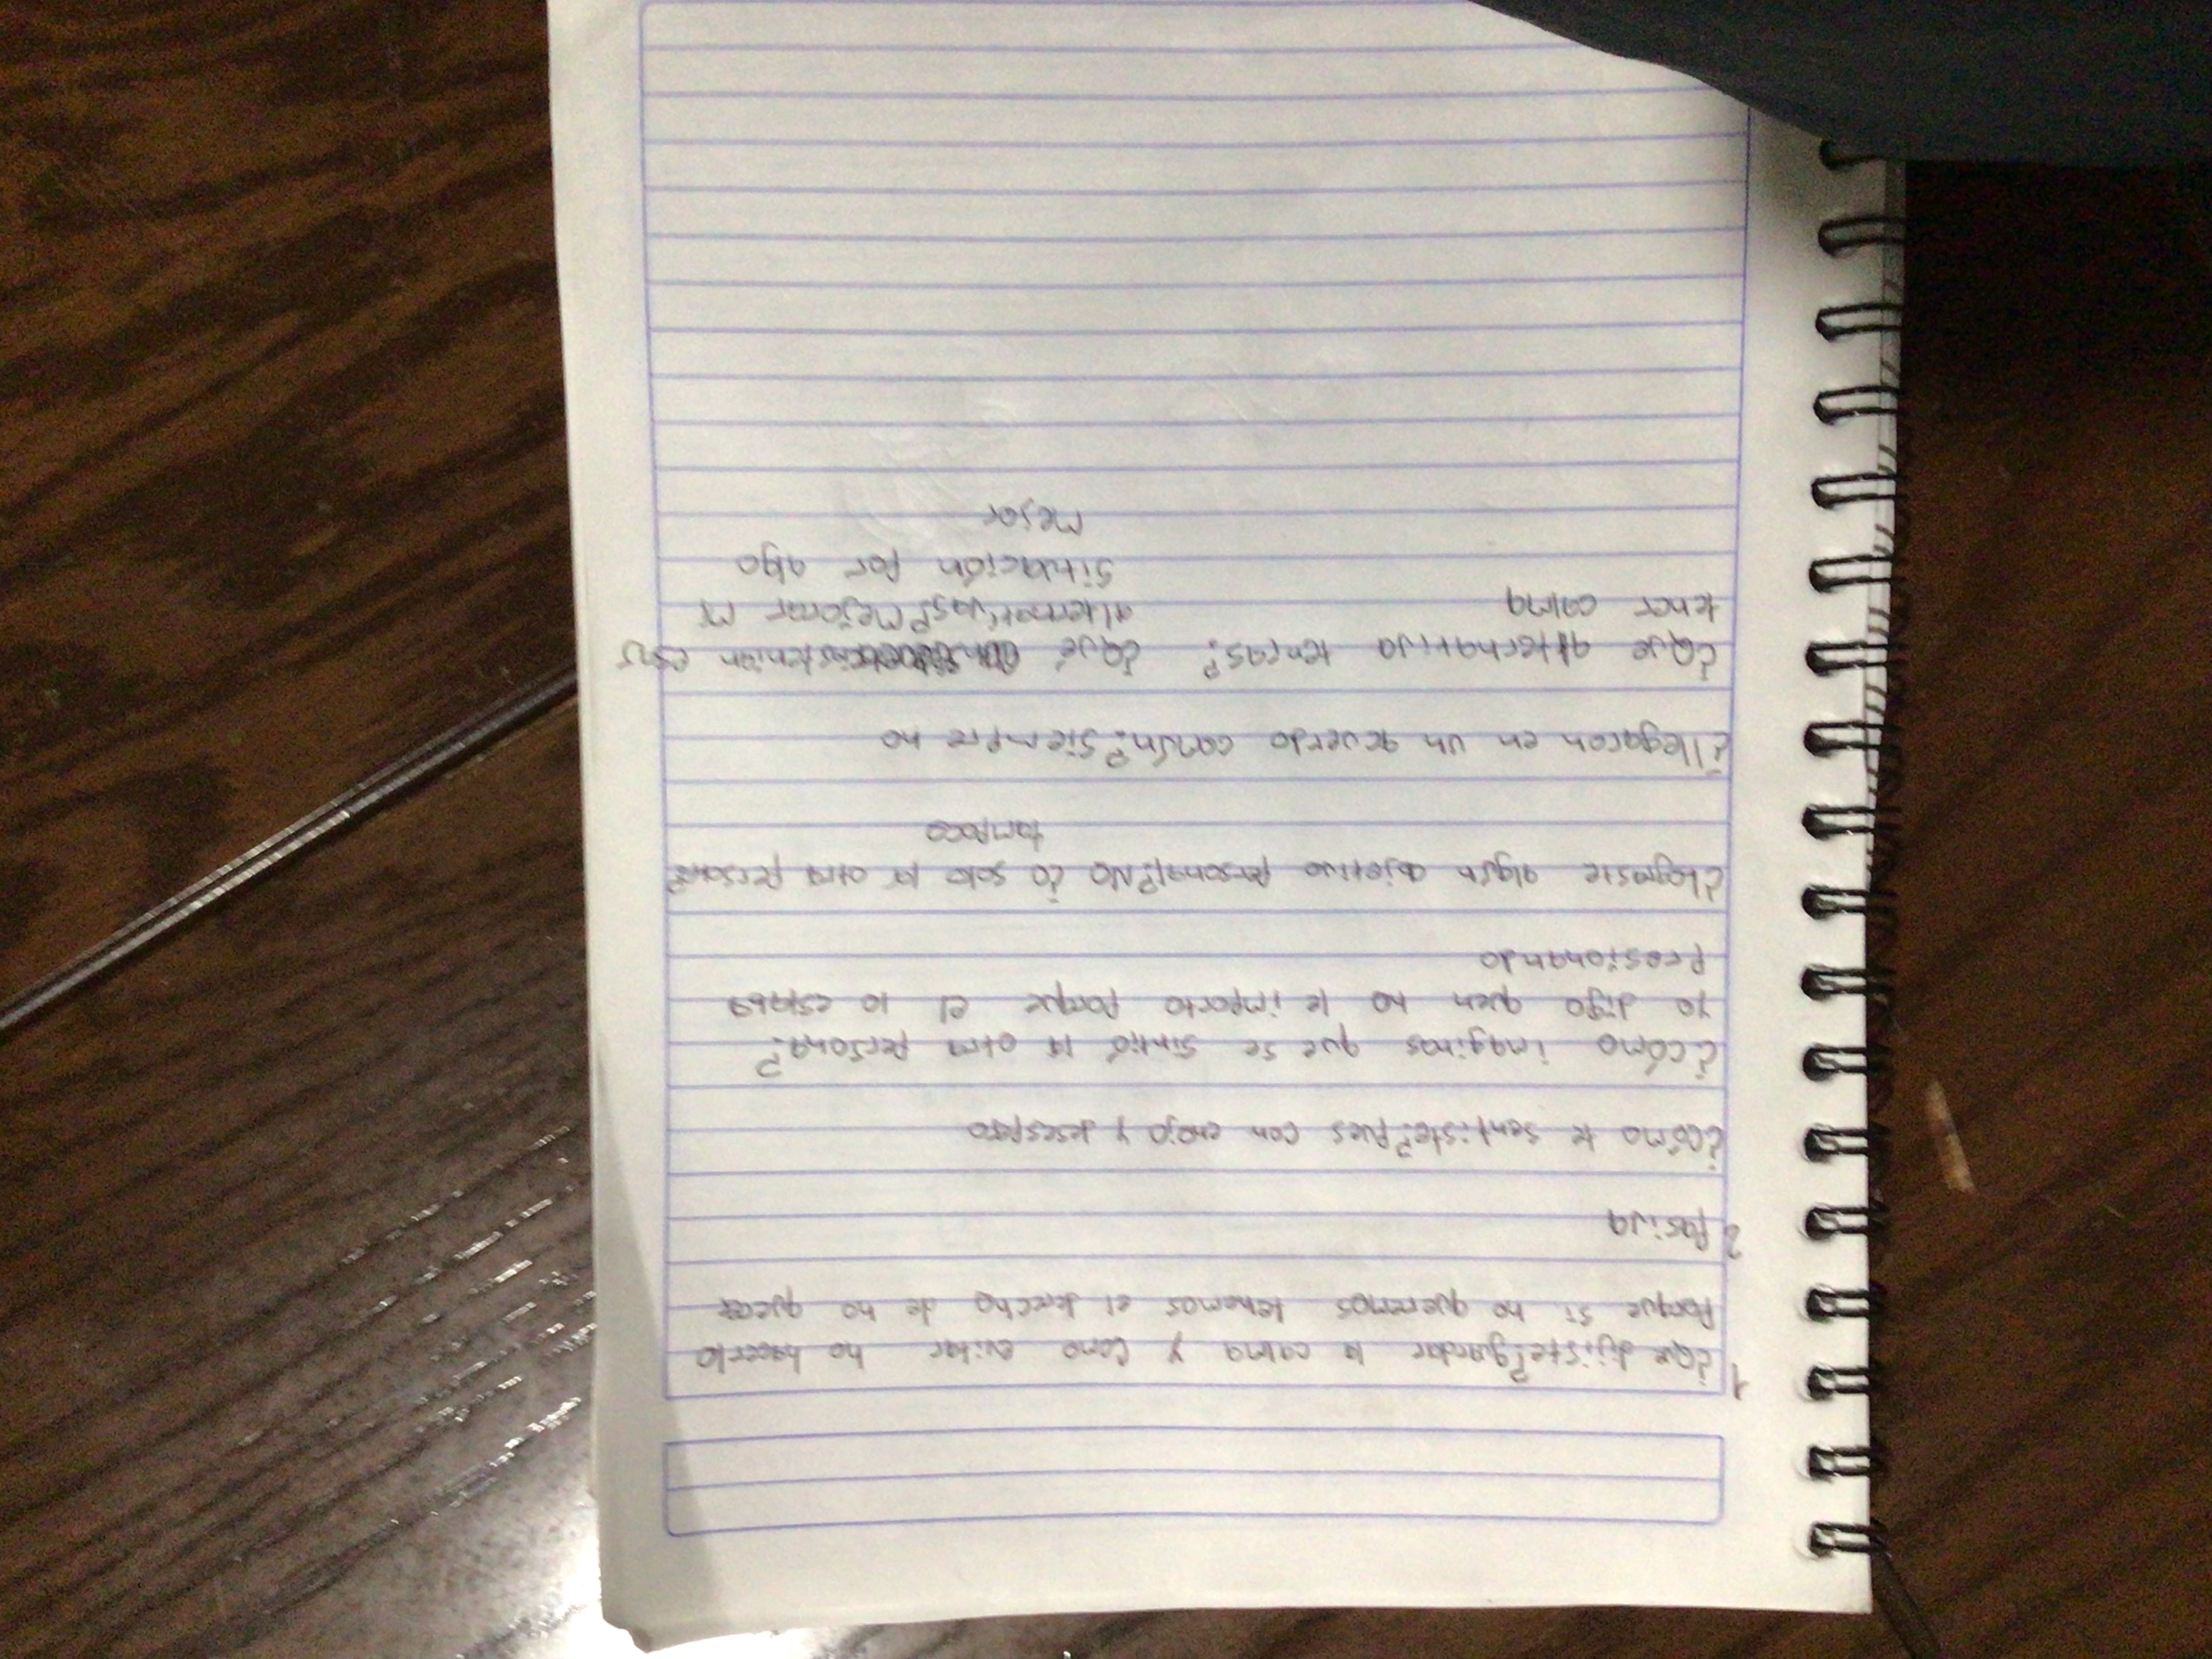 1 ¿Que dijiste? guardar la calma y como evitar no hacerlo
Porque si no queremos tenemos el derecho de no querer
2 Pasiva
¿Cómo te sentiste? Pues con enojo y desespero
¿Cómo imaginas que se sintió la otra persona?
yo digo quen no le importo porque el lo estaba
Presionando
¿Lograste algún objetivo personal? No ¿O solo la otra persona?
tampoco
¿llegaron en un acuerdo común? Siempre no
¿Que alternativa tenias?
tener calma
¿Qué tenian esas
alternativas? Mejorar mi
Situación por algo
Mejor